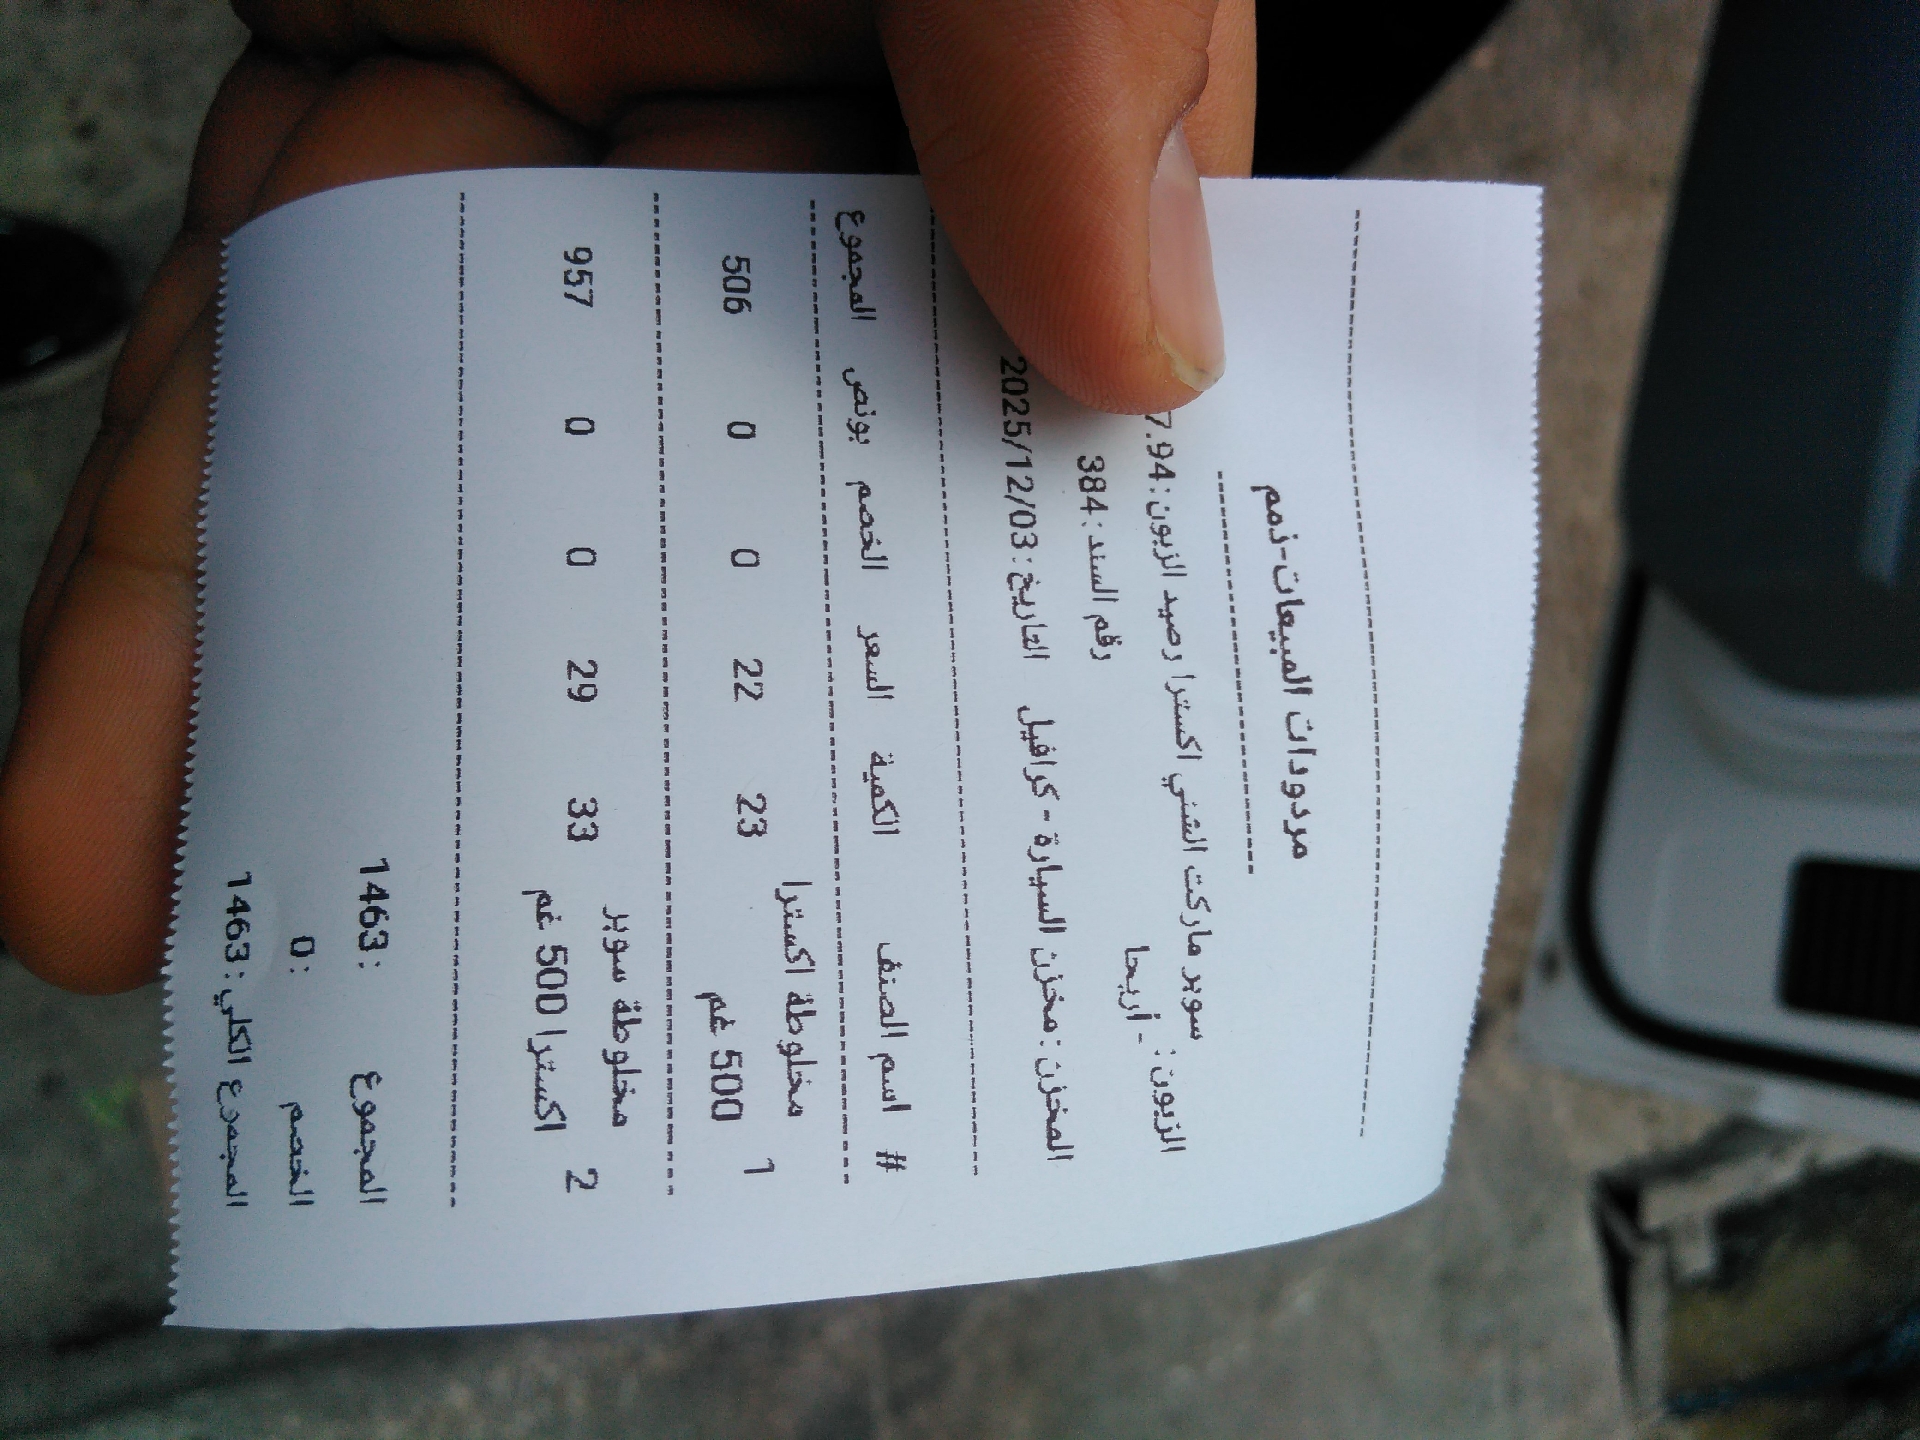 مردودات المبيعات-ذمم
الزبون: سوبر ماركت الشني اكسترا رصيد الزبون: 7.94
- أريحا
رقم السند: 384
المخزن: مخزن السيارة - كرافيل التاريخ: 2025/12/03
# اسم الصنف الكمية السعر الخصم بونص المجموع
1 مخلوطة اكسترا 500 غم 23 22 0 0 506
2 مخلوطة سوبر اكسترا 500 غم 33 29 0 0 957
المجموع : 1463
الخصم : 0
المجموع الكلي: 1463